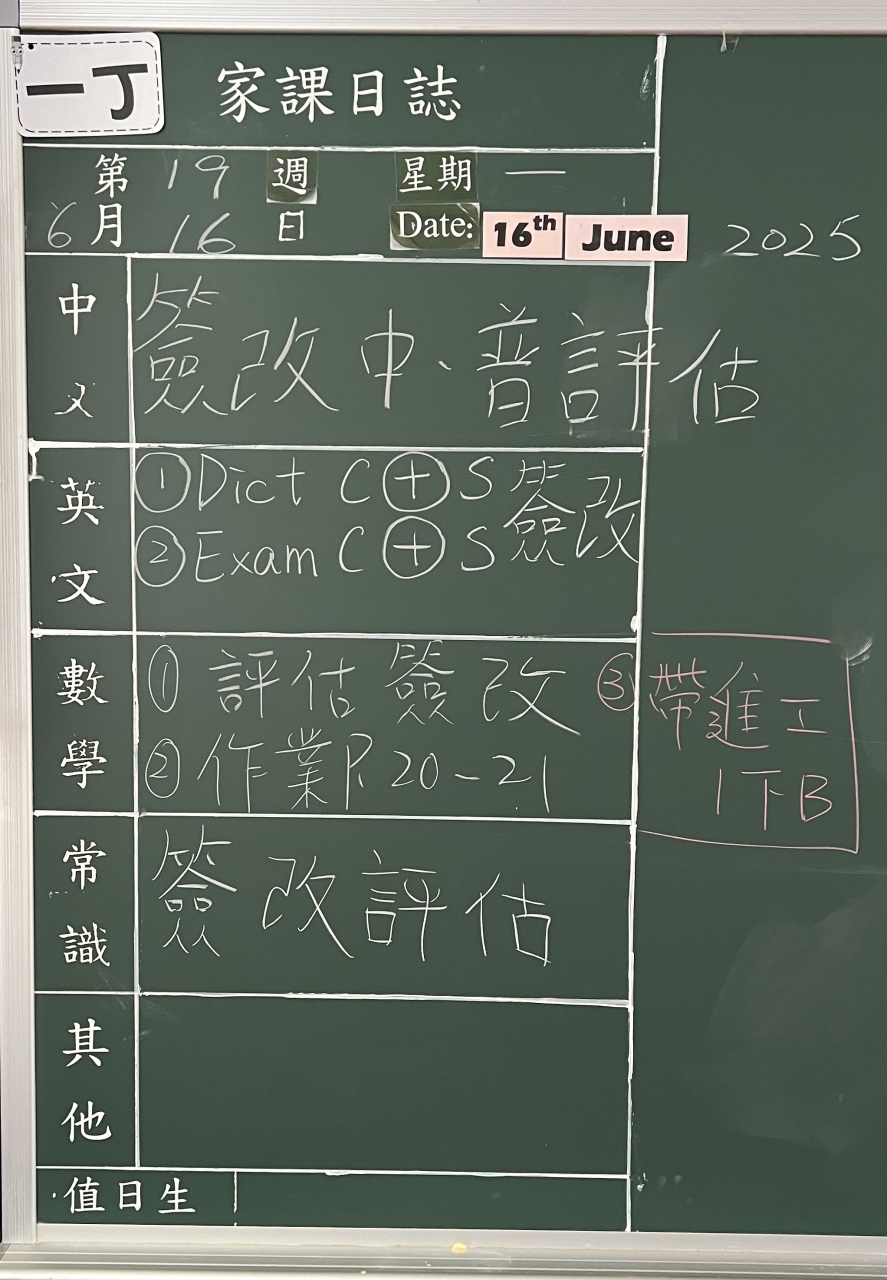 一丁
家課日誌
第 19 週 星期 一
6月 16 日 Date: 16th June 2025
中文 簽改中、普評估
英文 ①Dict C⊕S 簽改
②Exam C⊕S
數學 ① 評估簽改
② 作業P.20-21
③ 帶進工
1下B
常識 簽改評估
其他
值日生